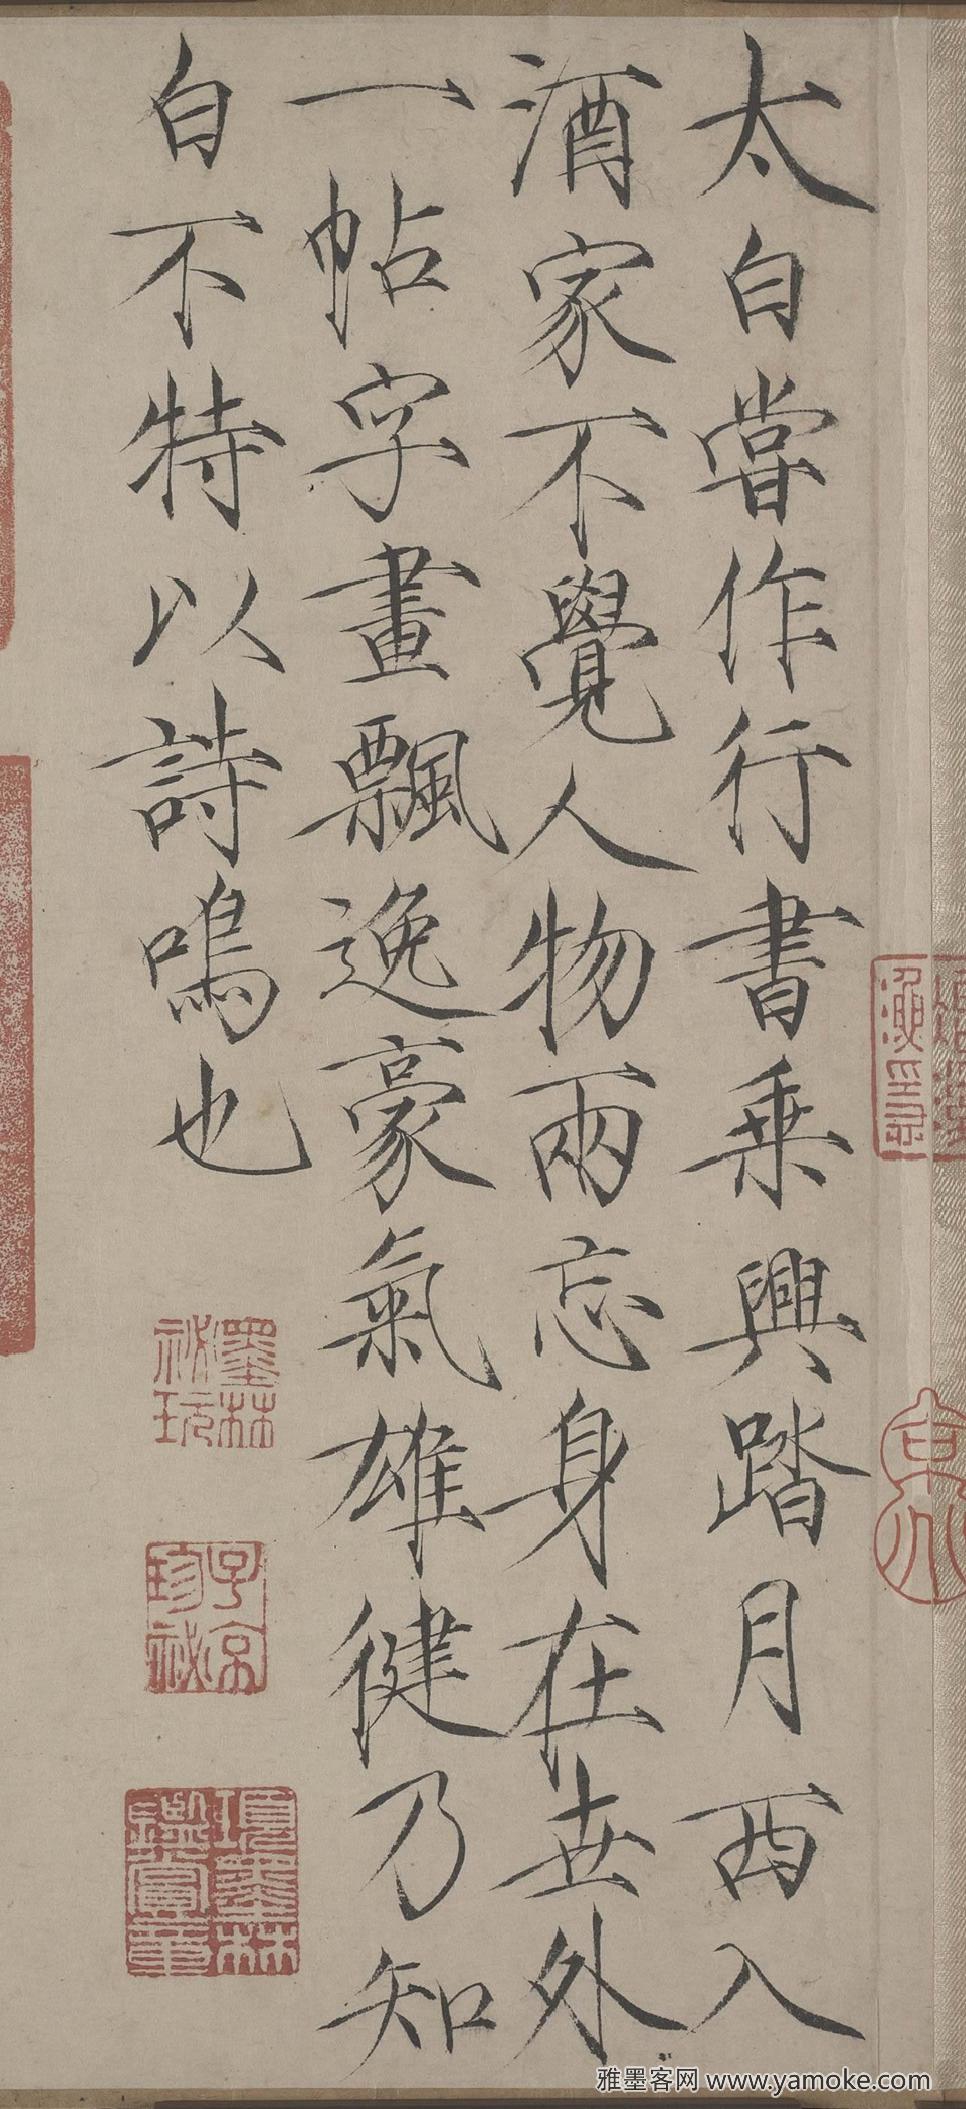 太白嘗作行書乘興踏月西入
酒家不覺人物兩忘身在世外
一帖字畫飄逸豪氣雄健乃知
白不特以詩鳴也
墨林
祕玩
子京
珍祕
項墨林
鑑賞章
雅墨客网 www.yamoke.com